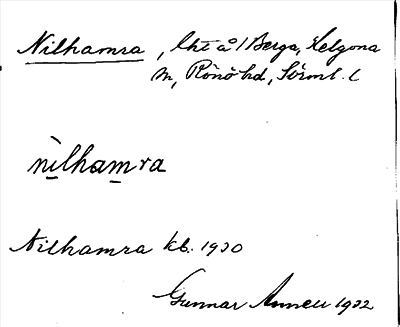 Nilhamra, lht å 1 Berga, Helgona
sn, Rönö hd, Sörml. l
nìlhamra
Nilhamra kb. 1930
Gunnar 1932